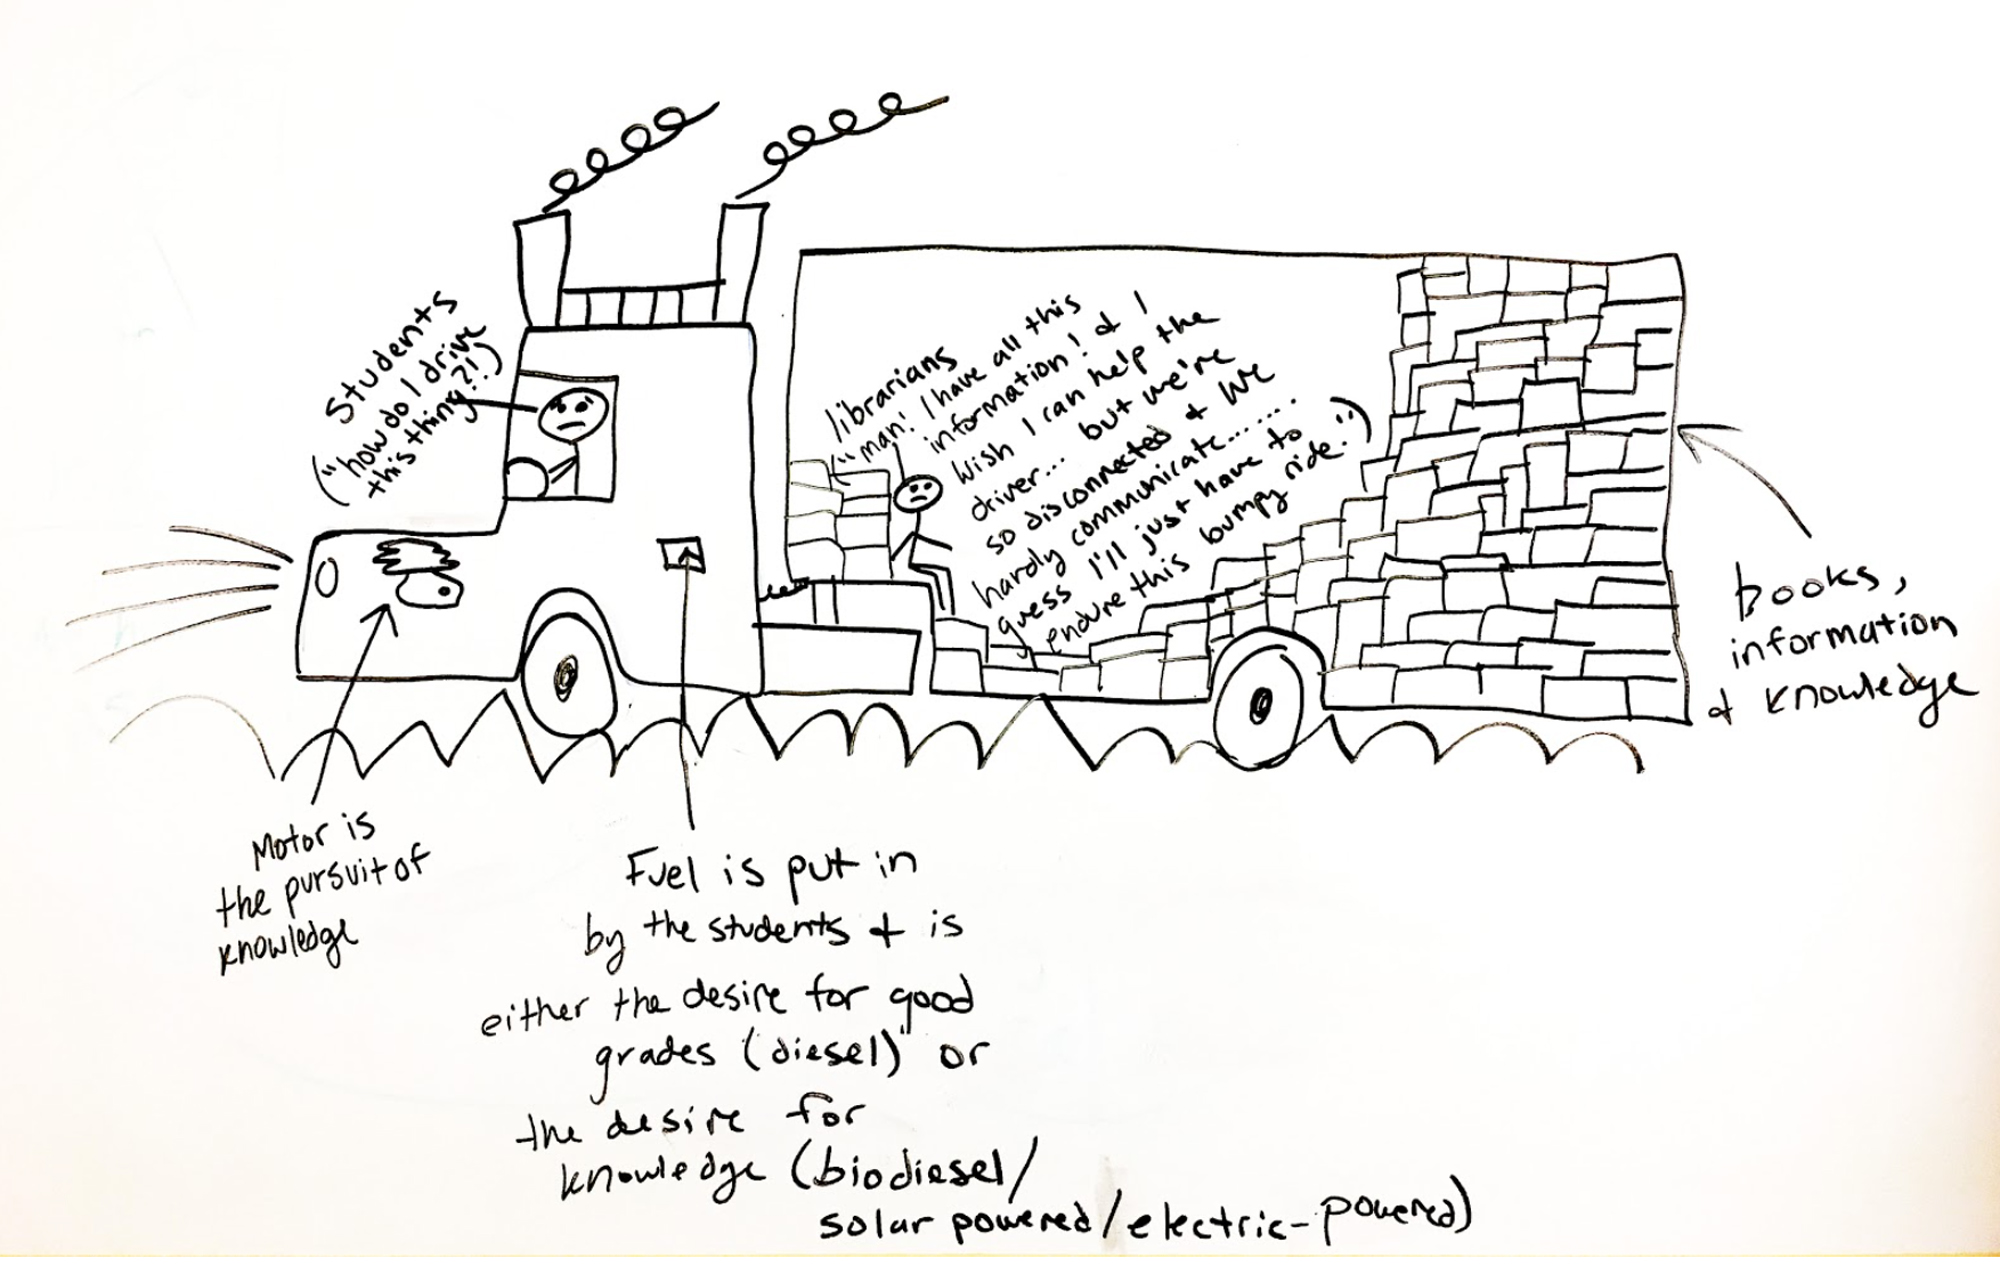 Students
("how do I drive
this thing?!?")
librarians
("man! I have all this
information! & I
wish I can help the
driver... but we're
so disconnected & we
hardly communicate......
guess I'll just have to
endure this bumpy ride.")
books,
information
& knowledge
Motor is
the pursuit of
knowledge
Fuel is put in
by the students & is
either the desire for good
grades (diesel) or
the desire for
knowledge (biodiesel/
solar powered/electric-powered)